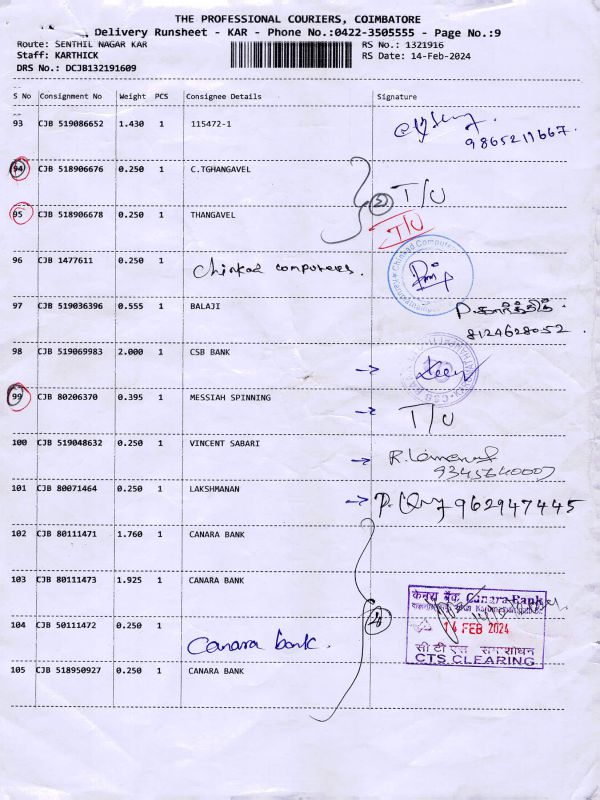 THE PROFESSIONAL COURIERS, COIMBATORE
Delivery Runsheet - KAR - Phone No.:0422-3505555 - Page No.:9
Route: SENTHIL NAGAR KAR RS No.: 1321916
Staff: KARTHICK RS Date: 14-Feb-2024
DRS No.: DCJB132191609
S No Consignment No Weight PCS Consignee Details Signature
93 CJB 519086652 1.430 1 115472-1
9865211667.
94 CJB 518906676 0.250 1 C.TGHANGAVEL
2 T/U
95 CJB 518906678 0.250 1 THANGAVEL
T/U
96 CJB 1477611 0.250 1 Chinkad computers.
Chinkad Computer
97 CJB 519036396 0.555 1 BALAJI
8124628052.
98 CJB 519069983 2.000 1 CSB BANK
CSB BA
99 CJB 80206370 0.395 1 MESSIAH SPINNING
T/U
100 CJB 519048632 0.250 1 VINCENT SABARI
9345640007
101 CJB 80071464 0.250 1 LAKSHMANAN 962947445
102 CJB 80111471 1.760 1 CANARA BANK
103 CJB 80111473 1.925 1 CANARA BANK
केनरा बैंक Canara Bank
104 CJB 50111472 0.250 1 Canara bank.
14 FEB 2024
सी टी एस समाशोधन
CTS CLEARING
105 CJB 518950927 0.250 1 CANARA BANK